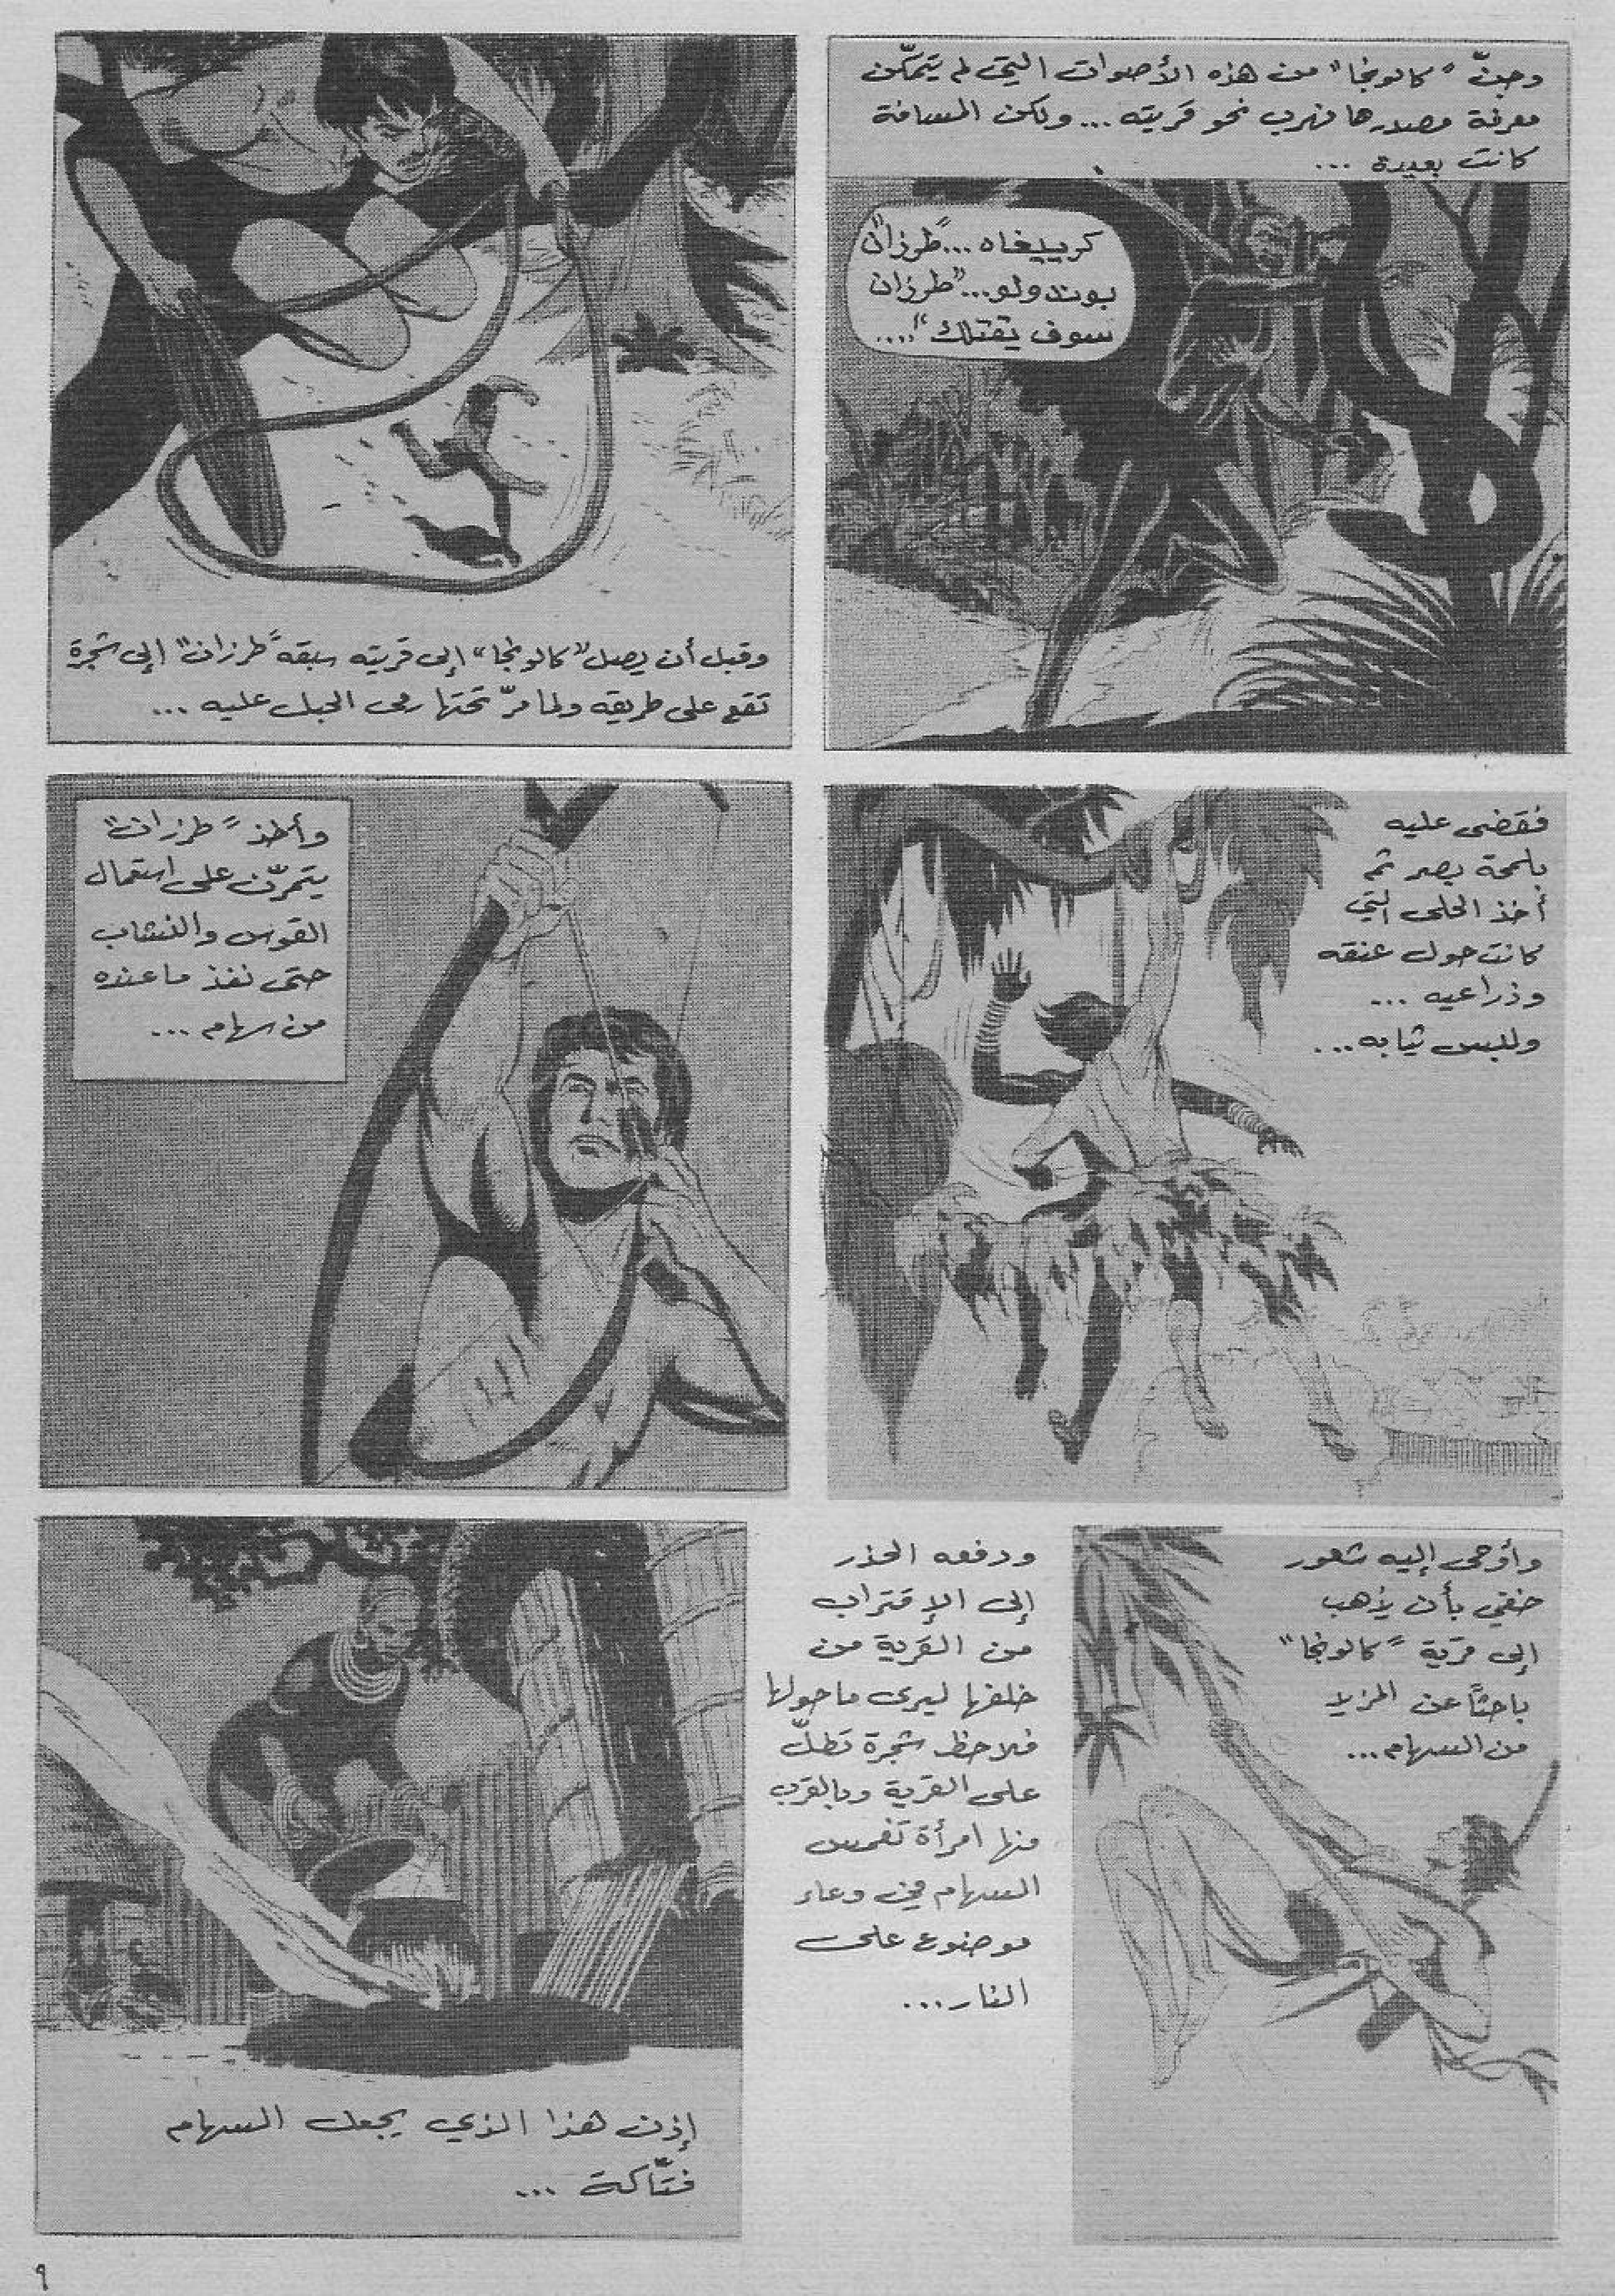 وجنّ "كالونجا" من هذه الأصوات التي لم يتمكّن
معرفة مصدرها فهرب نحو قريته... ولكن المسافة
كانت بعيدة ...
كرييغاه... "طرزان"
بوندولو... "طرزان
سوف يقتلك"....
وقبل أن يصل "كالونجا" إلى قريته سبقه "طرزان" إلى شجرة
تقع على طريقه ولما مرّ تحتها رمى الحبل عليه ...
فقضى عليه
بلمحة بصر ثم
أخذ الحلى التي
كانت حول عنقه
وذراعيه ...
ولبس ثيابه...
وأخذ "طرزان"
يتمرّن على استعمال
القوس والنشاب
حتى نفذ ما عنده
من سهام ...
وأوحى إليه شعور
خفي بأن يذهب
إلى قرية "كالونجا"
باحثاً عن المزيد
من السهام...
ودفعه الحذر
إلى الإقتراب
من القرية من
خلفها ليرى ما حولها
فلاحظ شجرة تطلّ
على القرية وبالقرب
منها امرأة تغمس
السهام في وعاء
موضوع على
النار...
إذن هذا الذي يجعل السهام
فتّاكة ...
٩